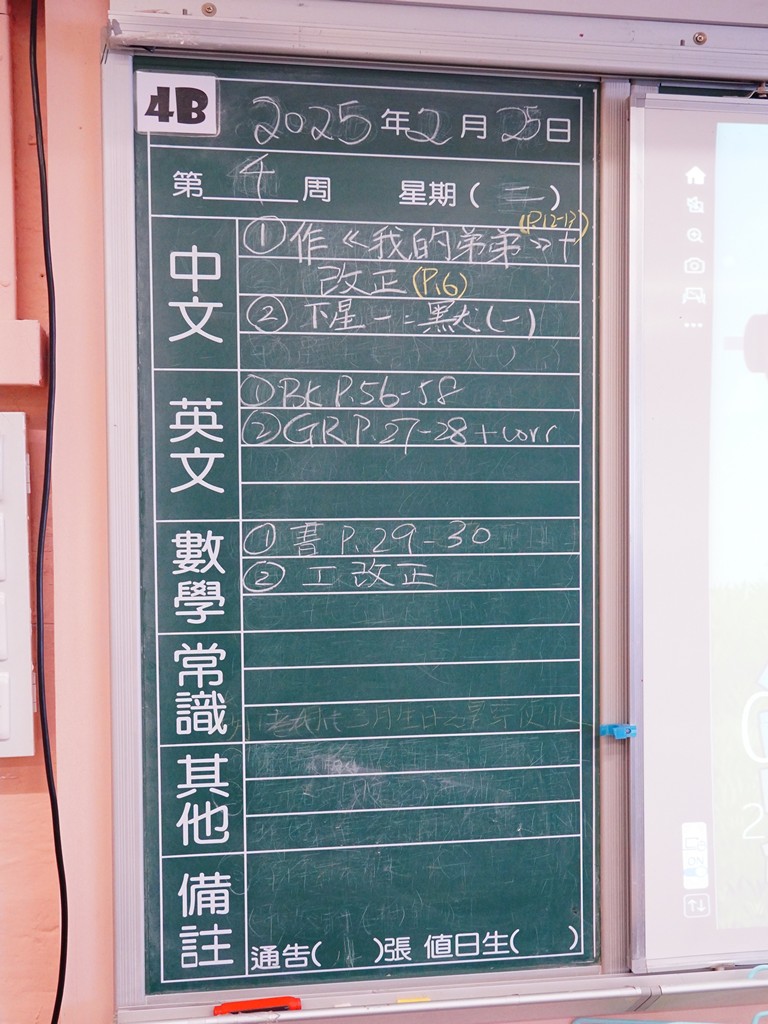 4B
2025年2月25日
第4周 星期(二)
中文
①作《我的弟弟》(P.12-13)+
改正(P.6)
②下星一:默(一)
英文
①BK P.56-58
②GR P.27-28+corr
數學
①書 P.29-30
②工改正
常識
其他
備註
通告( )張 值日生( )
2